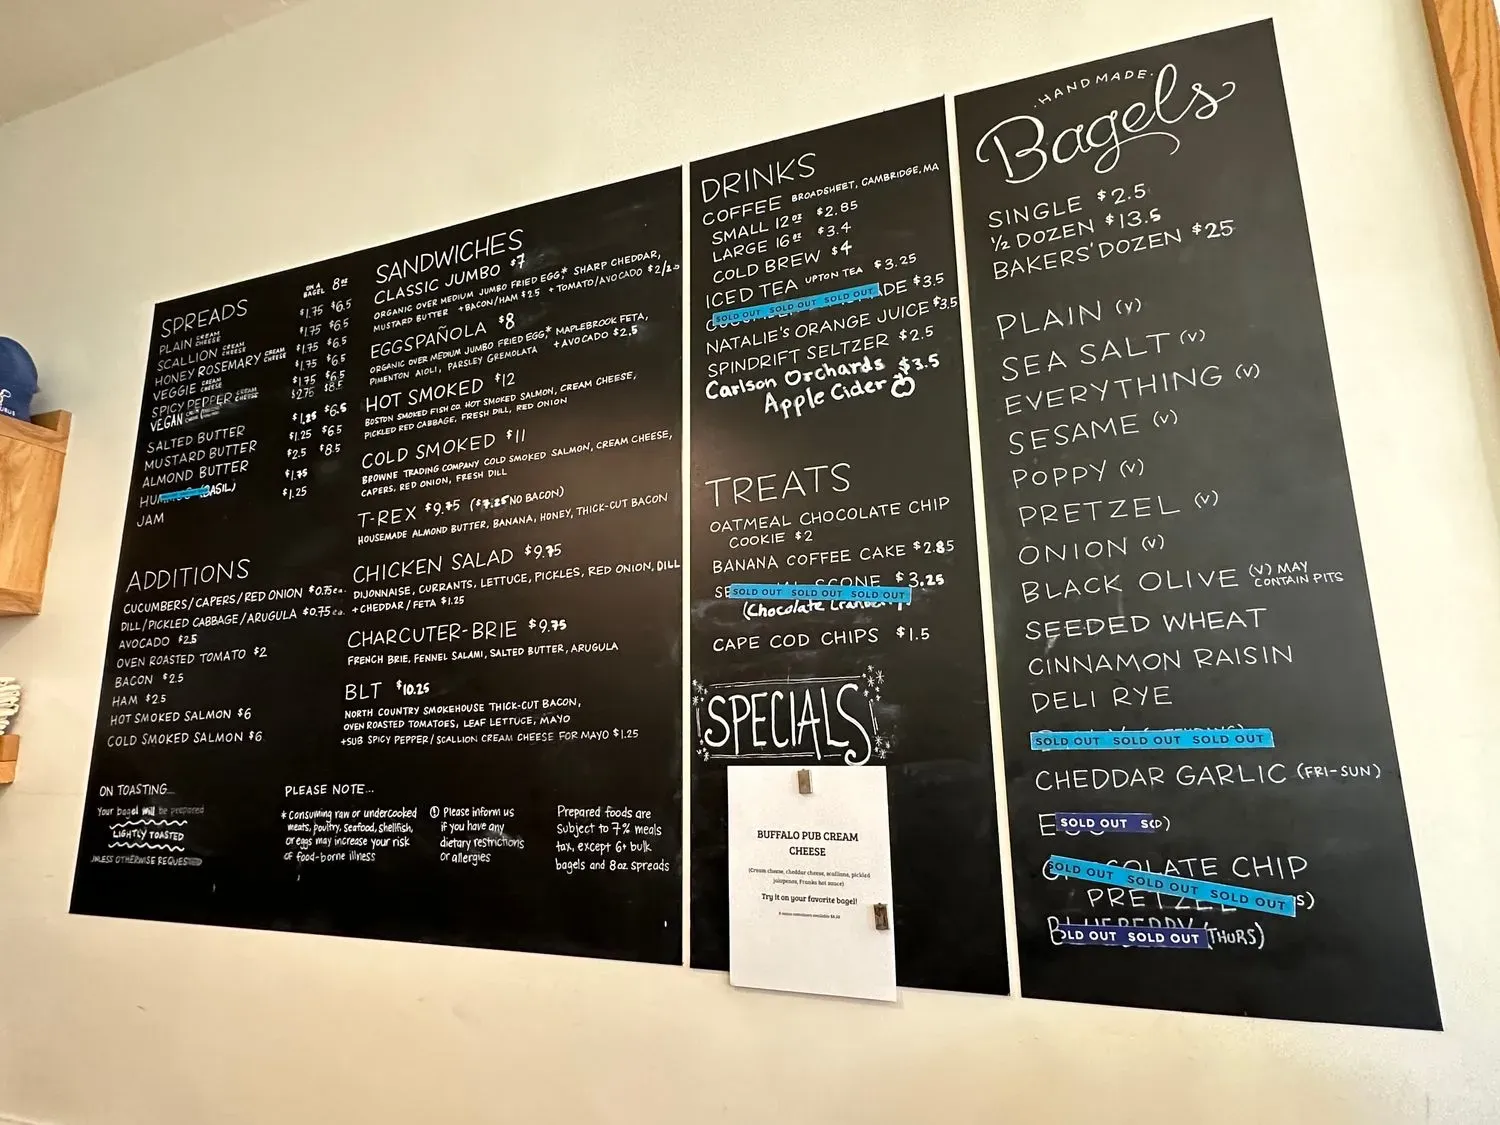 SPREADS
ON A BAGEL 8oz
PLAIN CREAM CHEESE $1.75 $6.5
SCALLION CREAM CHEESE $1.75 $6.5
HONEY ROSEMARY CREAM CHEESE $1.75 $6.5
VEGGIE CREAM CHEESE $1.75 $6.5
SPICY PEPPER CREAM CHEESE $1.75 $6.5
VEGAN $2.75 $8.5
SALTED BUTTER $1.25 $6.5
MUSTARD BUTTER $1.25 $6.5
ALMOND BUTTER $2.5 $8.5
(BASIL) $1.75
JAM $1.25
ADDITIONS
CUCUMBERS/CAPERS/RED ONION $0.75ea.
DILL/PICKLED CABBAGE/ARUGULA $0.75ea.
AVOCADO $2.5
OVEN ROASTED TOMATO $2
BACON $2.5
HAM $2.5
HOT SMOKED SALMON $6
COLD SMOKED SALMON $6
ON TOASTING...
Your bagel will be prepared
LIGHTLY TOASTED
UNLESS OTHERWISE REQUESTED
SANDWICHES
CLASSIC JUMBO $7
ORGANIC OVER MEDIUM JUMBO FRIED EGG,* SHARP CHEDDAR,
MUSTARD BUTTER +BACON/HAM $2.5 +TOMATO/AVOCADO $2/2.5
EGGSPAÑOLA $8
ORGANIC OVER MEDIUM JUMBO FRIED EGG,* MAPLEBROOK FETA,
PIMENTON AIOLI, PARSLEY GREMOLATA +AVOCADO $2.5
HOT SMOKED $12
BOSTON SMOKED FISH CO. HOT SMOKED SALMON, CREAM CHEESE,
PICKLED RED CABBAGE, FRESH DILL, RED ONION
COLD SMOKED $11
BROWNE TRADING COMPANY COLD SMOKED SALMON, CREAM CHEESE,
CAPERS, RED ONION, FRESH DILL
T-REX $9.75 ($7.25 NO BACON)
HOUSEMADE ALMOND BUTTER, BANANA, HONEY, THICK-CUT BACON
CHICKEN SALAD $9.75
DIJONNAISE, CURRANTS, LETTUCE, PICKLES, RED ONION, DILL
+CHEDDAR/FETA $1.25
CHARCUTER-BRIE $9.75
FRENCH BRIE, FENNEL SALAMI, SALTED BUTTER, ARUGULA
BLT $10.25
NORTH COUNTRY SMOKEHOUSE THICK-CUT BACON,
OVEN ROASTED TOMATOES, LEAF LETTUCE, MAYO
+SUB SPICY PEPPER/SCALLION CREAM CHEESE FOR MAYO $1.25
PLEASE NOTE...
*Consuming raw or undercooked
meats, poultry, seafood, shellfish,
or eggs may increase your risk
of food-borne illness
Please inform us
if you have any
dietary restrictions
or allergies
Prepared foods are
subject to 7% meals
tax, except 6+ bulk
bagels and 8oz spreads
DRINKS
COFFEE BROADSHEET, CAMBRIDGE, MA
SMALL 12oz $2.85
LARGE 16oz $3.4
COLD BREW $4
ICED TEA UPTON TEA $3.25
SOLD OUT SOLD OUT SOLD OUT ADE $3.5
NATALIE'S ORANGE JUICE $3.5
SPINDRIFT SELTZER $2.5
Carlson Orchards $3.5
Apple Cider
TREATS
OATMEAL CHOCOLATE CHIP
COOKIE $2
BANANA COFFEE CAKE $2.85
SCONE $3.25
SOLD OUT SOLD OUT SOLD OUT
(Chocolate
CAPE COD CHIPS $1.5
SPECIALS
BUFFALO PUB CREAM
CHEESE
(Cream cheese, cheddar cheese, scallions, pickled
jalapenos, Franks hot sauce)
Try it on your favorite bagel!
HANDMADE
Bagels
SINGLE $2.5
1/2 DOZEN $13.5
BAKERS' DOZEN $25
PLAIN (v)
SEA SALT (v)
EVERYTHING (v)
SESAME (v)
POPPY (v)
PRETZEL (v)
ONION (v)
BLACK OLIVE (v) MAY
CONTAIN PITS
SEEDED WHEAT
CINNAMON RAISIN
DELI RYE
SOLD OUT SOLD OUT SOLD OUT
CHEDDAR GARLIC (FRI-SUN)
SOLD OUT
CHOCOLATE CHIP
SOLD OUT SOLD OUT SOLD OUT
PRETZEL
BLUEBERRY (THURS)
OLD OUT SOLD OUT